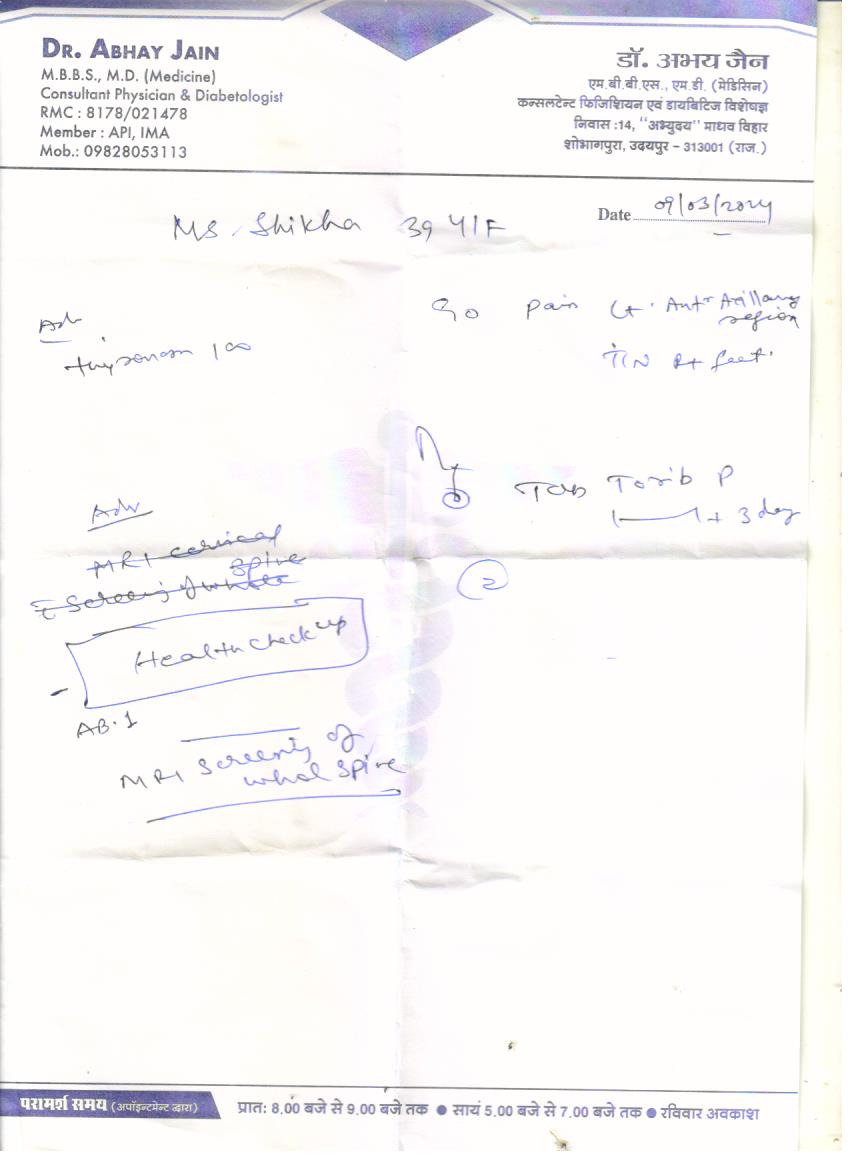 DR. ABHAY JAIN
M.B.B.S., M.D. (Medicine)
Consultant Physician & Diabetologist
RMC : 8178/021478
Member : API, IMA
Mob.: 09828053113
डॉ. अभय जैन
एम.बी.बी.एस., एम.डी. (मेडिसिन)
कन्सलटेन्ट फिजिशियन एवं डायबिटिज विशेषज्ञ
निवास :14, "अभ्युदय" माधव विहार
शोभागपुरा, उदयपुर - 313001 (राज.)
Date 09/03/2024
Ms. Shikha 39 Y/F
Pain Lt. Antr Axillary
region
Rt feet.
100
Tab Torib P
1 1 + 3 day
2
Adv
MRI cervical
spine
Screening of whole
Health check up
AB.1
MRI Screening of
whol Spine
परामर्श समय (अपॉइन्टमेन्ट द्वारा)
प्रात: 8.00 बजे से 9.00 बजे तक ● सायं 5.00 बजे से 7.00 बजे तक ● रविवार अवकाश